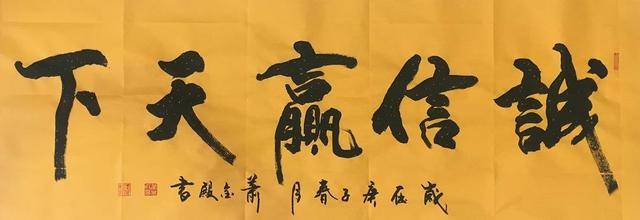 誠信贏天下
歲在庚子春月蕭金殿書